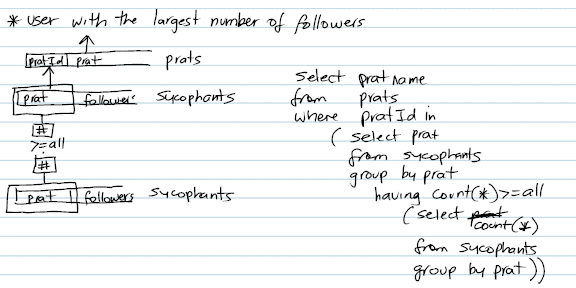 * user with the largest number of followers
pratId prat prats
prat followers sycophants
#
>=all
#
prat followers sycophants
select pratname
from prats
where pratId in
( select prat
from sycophants
group by prat
having count(*) >= all
( select prat count(*)
from sycophants
group by prat ))